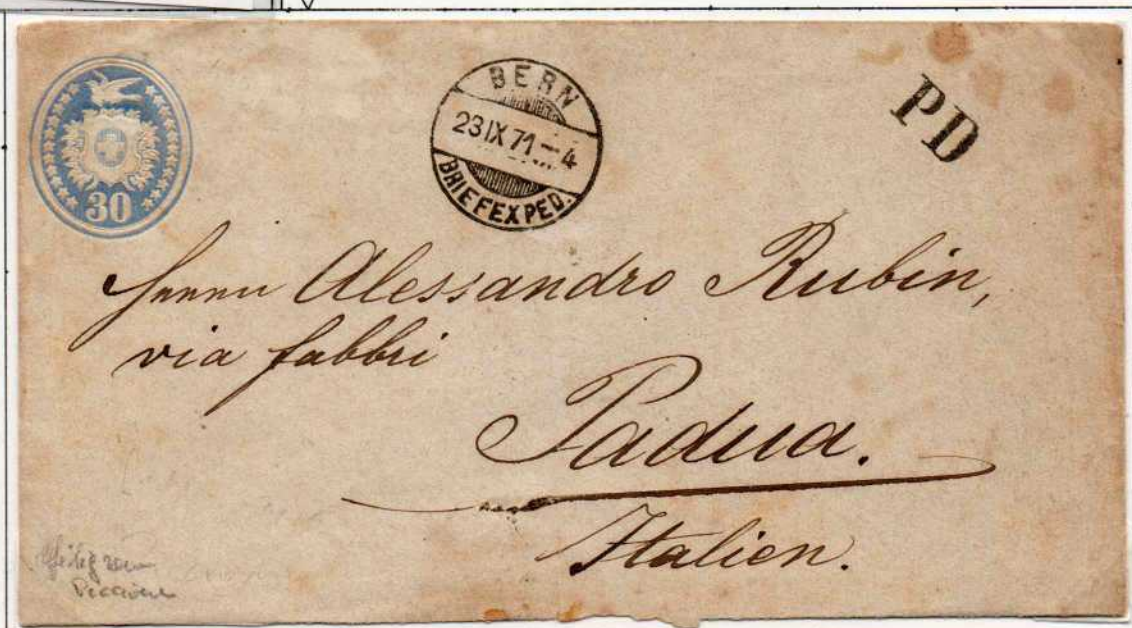 30
BERN
23 IX 71 – 4
BRIEFEXPED.
PD
Herrn Alessandro Rubin,
via fabbri
Padua.
Italien.